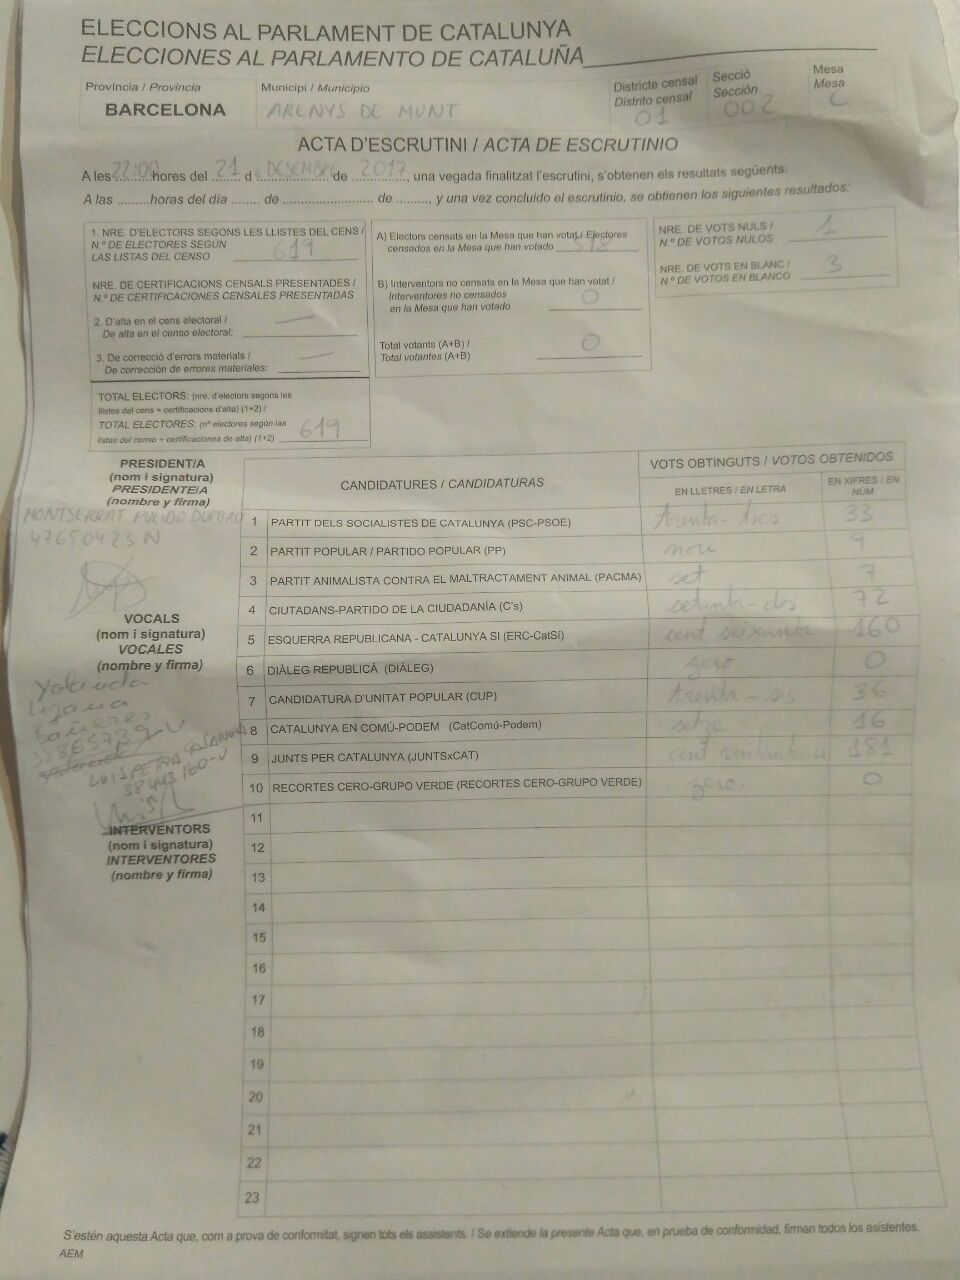 ELECCIONS AL PARLAMENT DE CATALUNYA
ELECCIONES AL PARLAMENTO DE CATALUÑA
Província / Provincia
BARCELONA
Municipi / Municipio
ARENYS DE MUNT
Districte censal
Distrito censal
01
Secció
Sección
002
Mesa
Mesa
C
ACTA D'ESCRUTINI / ACTA DE ESCRUTINIO
A les 22:00 hores del 21 de DESEMBRE de 2017, una vegada finalitzat l'escrutini, s'obtenen els resultats següents:
A las .........horas del día ...... de ...................... de ........, y una vez concluido el escrutinio, se obtienen los siguientes resultados:
1. NRE. D'ELECTORS SEGONS LES LLISTES DEL CENS /
N.º DE ELECTORES SEGÚN
LAS LISTAS DEL CENSO 619
NRE. DE CERTIFICACIONS CENSALS PRESENTADES /
N.º DE CERTIFICACIONES CENSALES PRESENTADAS
2. D'alta en el cens electoral /
De alta en el censo electoral: —
3. De correcció d'errors materials /
De corrección de errores materiales: —
TOTAL ELECTORS: (nre. d'electors segons les
llistes del cens + certificacions d'alta) (1+2) /
TOTAL ELECTORES: (nº electores según las
listas del censo + certificaciones de alta) (1+2) 619
A) Electors censats en la Mesa que han votat / Electores
censados en la Mesa que han votado 518
B) Interventors no censats en la Mesa que han votat /
Interventores no censados
en la Mesa que han votado 0
Total votants (A+B) /
Total votantes (A+B) 0
NRE. DE VOTS NULS /
N.º DE VOTOS NULOS 1
NRE. DE VOTS EN BLANC /
N.º DE VOTOS EN BLANCO 3
PRESIDENT/A
(nom i signatura)
PRESIDENTE/A
(nombre y firma)
MONTSERRAT PULIDO
47650423N
VOCALS
(nom i signatura)
VOCALES
(nombre y firma)
Yolanda
38865739
LUIS
38443160-V
INTERVENTORS
(nom i signatura)
INTERVENTORES
(nombre y firma)
CANDIDATURES / CANDIDATURAS
VOTS OBTINGUTS / VOTOS OBTENIDOS
EN LLETRES / EN LETRA
EN XIFRES / EN NÚM
1 PARTIT DELS SOCIALISTES DE CATALUNYA (PSC-PSOE) trenta-tres 33
2 PARTIT POPULAR / PARTIDO POPULAR (PP) nou 9
3 PARTIT ANIMALISTA CONTRA EL MALTRACTAMENT ANIMAL (PACMA) set 7
4 CIUTADANS-PARTIDO DE LA CIUDADANÍA (C's) setanta-dos 72
5 ESQUERRA REPUBLICANA - CATALUNYA SÍ (ERC-CatSí) cent seixanta 160
6 DIÀLEG REPUBLICÀ (DIÀLEG) zero 0
7 CANDIDATURA D'UNITAT POPULAR (CUP) trenta-sis 36
8 CATALUNYA EN COMÚ-PODEM (CatComú-Podem) setze 16
9 JUNTS PER CATALUNYA (JUNTSxCAT) cent vuitanta u 181
10 RECORTES CERO-GRUPO VERDE (RECORTES CERO-GRUPO VERDE) zero. 0
11
12
13
14
15
16
17
18
19
20
21
22
23
S'estén aquesta Acta que, com a prova de conformitat, signen tots els assistents. / Se extiende la presente Acta que, en prueba de conformidad, firman todos los asistentes.
AEM